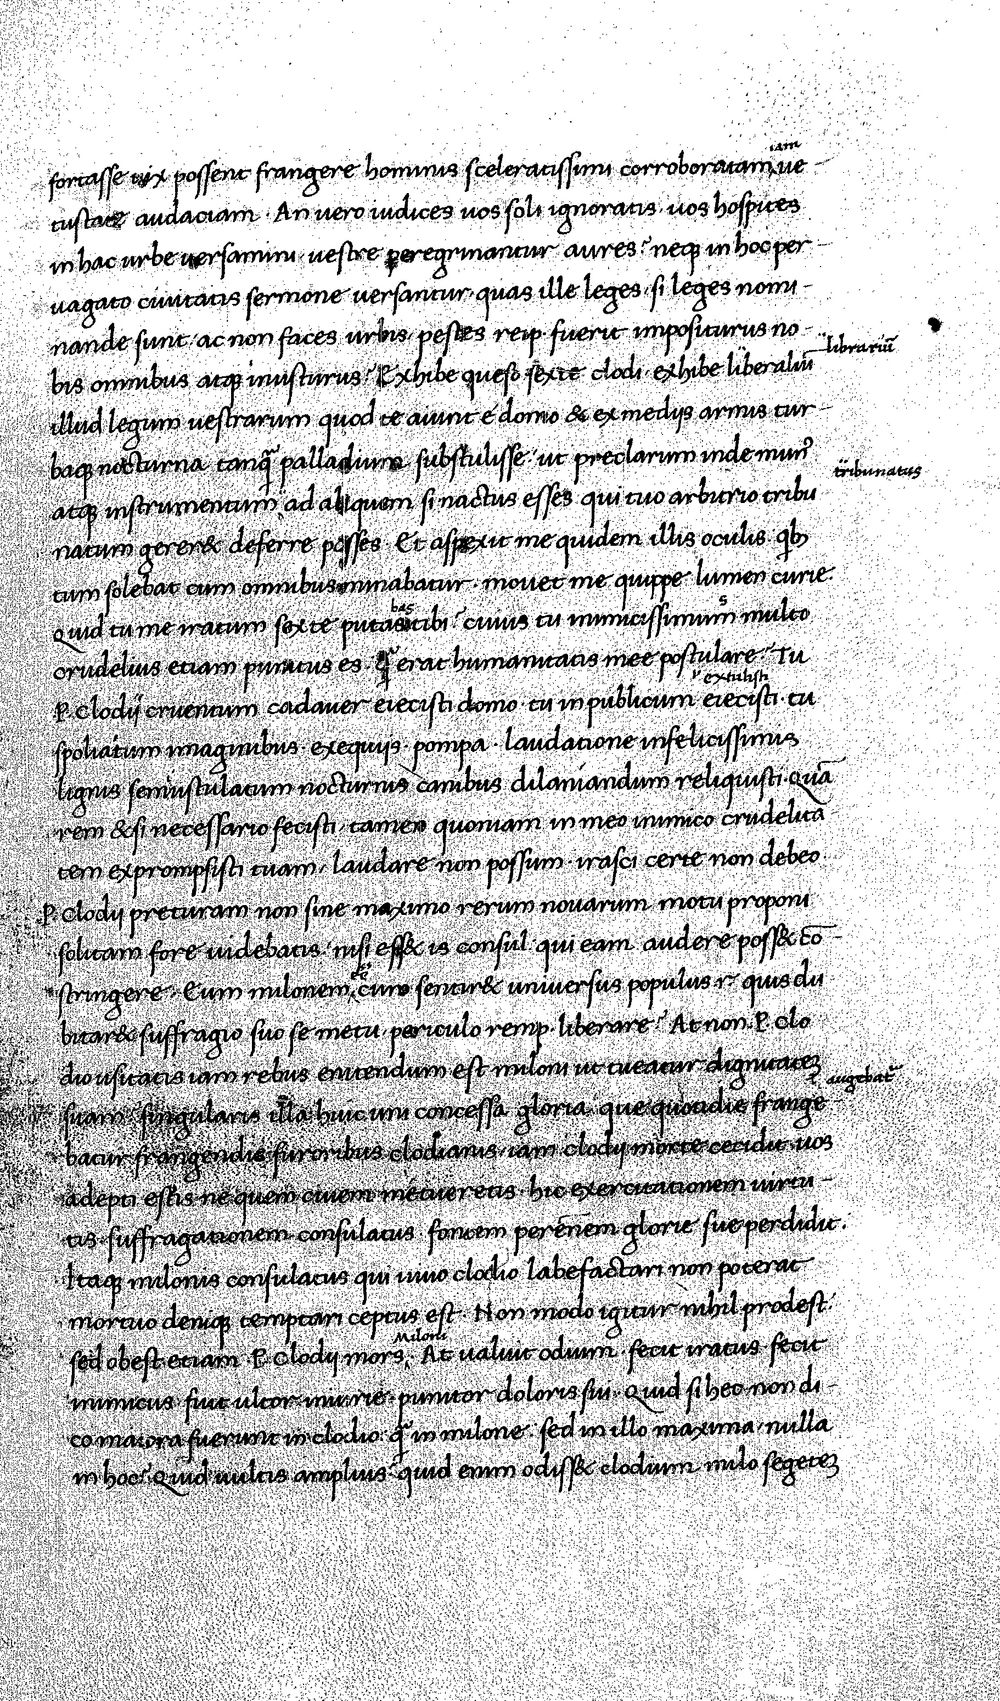 fortasse uix possent frangere hominis sceleratissimi corroboratam iam ue-
tustatē audaciam · An uero iudices uos soli ignoratis · uos hospites
in hac urbe uersamini · uestre peregrinantur aures? neq; in hoc per-
uagato ciuitatis sermone uersantur · quas ille leges · si leges nomi-
nande sunt · ac non faces urbis · pestes reip· fuerit impositurus no-
bis omnibus atq; inusturus? Exhibe queso sexte clodi · exhibe liberaliū librariū
illud legum uestrarum quod te aiunt e domo & ex medijs armis tur-
baq; nocturna tanq̃ palladium substulisse · ut preclarum inde mun9
atq; instrumentum ad aliquem si nactus esses qui tuo arbitrio tribu tribunatus
natum gerer& deferre posses · Et aspexit me quidem illis oculis qb
tum solebat cum omnibus minabatur · mouet me quippe lumen curie·
Quid tu me iratum sexte putabas tibi? cuius tu inimicissimum s multo
crudelius etiam punitus es · q̃ erat humanitatis mee postulare? Tu
P· Clodij cruentum cadauer eiecisti domo · tu in publicum eiecisti extulisti · tu
spoliatum imaginibus · exequijs · pompa · laudatione infelicissimis
lignis semiustulatum nocturnis canibus dilaniandum reliquisti · Quā
rem &si necessario fecisti · tamen quoniam in meo inimico crudelita-
tem exprompsisti tuam · laudare non possum · irasci certe non debeo
P· Clodij preturam non sine maximo rerum nouarum motu proponi
solitam fore uidebatis · nisi ess& is consul · qui eam audere poss& cō-
stringere · Eum milonem eē cum sentir& uniuersus populus r· quis du
bitar& suffragio suo se metu · periculo remp· liberare? At non P· Clo
dio usitatis iam rebus enitendum est miloni ut tueatur dignitatē
suam · singularis illa huic uni concessa gloria · que quotidie frange- augebat̃
batur frangendis furoribus clodianis · iam clodij morte cecidit · uos
adepti estis ne quem ciuem metueretis · hic exercitationem uirtu-
tis · suffragationem consulatus · fontem perēnem glorie sue perdidit·
Itaq; milonis consulatus qui uiuo clodio labefactari non poterat
mortuo deniq; temptari ceptus est · Non modo igitur nihil prodest·
sed obest etiam P· Clodij mors Miloni · At ualuit odium · fecit iratus · fecit
inimicus · fuit ultor iniurie · punitor doloris sui · Quid si hec non di-
co maiora fuerunt in clodio q̃ in milone · sed in illo maxima · nulla
in hoc? Quid uultis amplius? quid enim odiss& clodium milo segetē